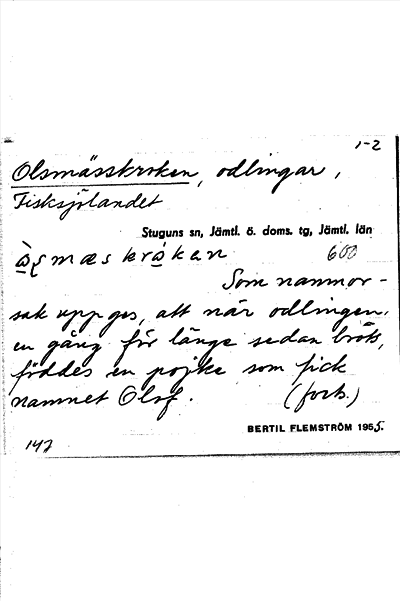 1-2
Olsmässkroken, odlingar,
Fisksjölandet
Stuguns sn, Jämtl. ö. doms. tg, Jämtl. län
600
Som namnor-
sak uppges, att när odlingen
en gång för länge sedan bröts,
föddes en pojke som fick
namnet Olof. (forts.)
BERTIL FLEMSTRÖM 1955.
142